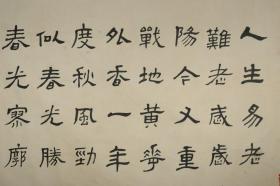 人生易老
難老歲歲
陽今又重
戰地黃華
外香一年
度秋風勁
似春光勝
春光寥廓